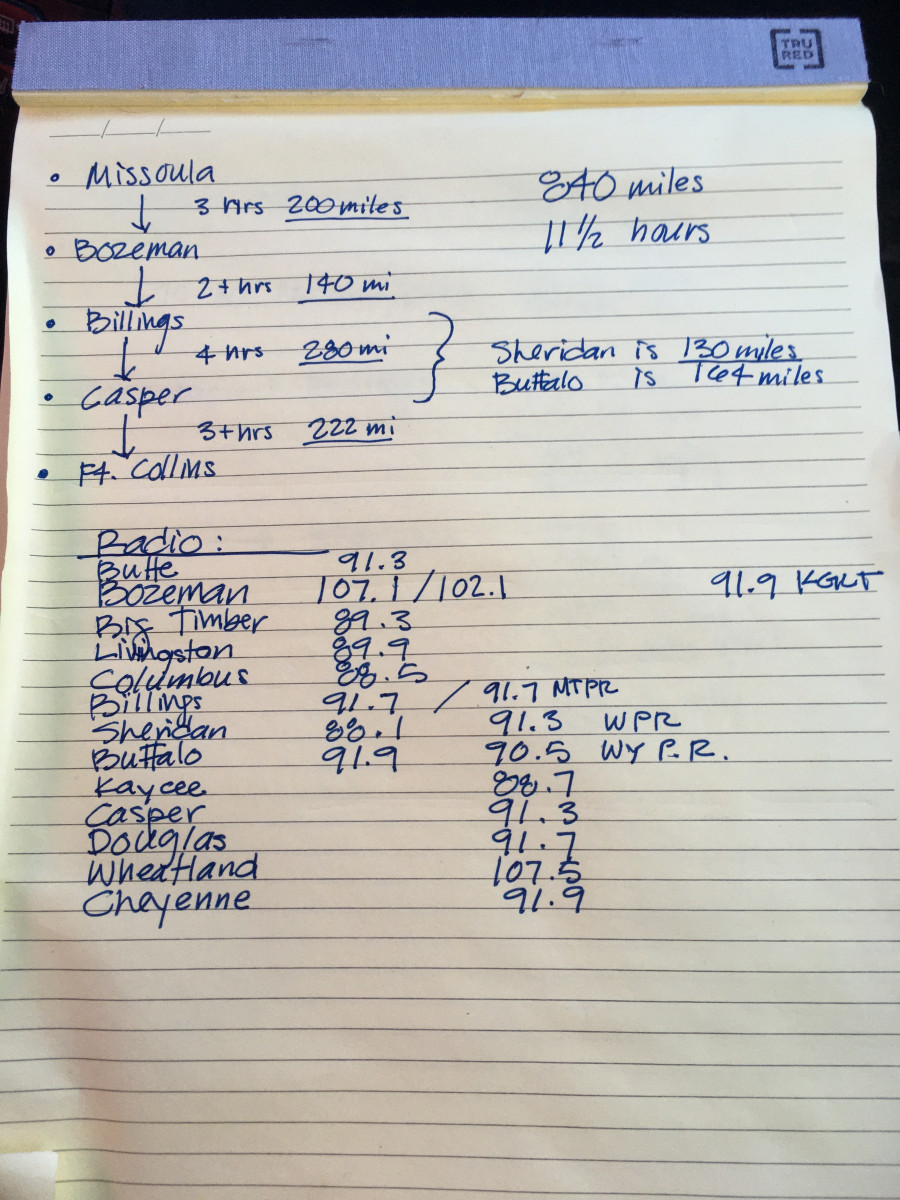 TRU
RED
• Missoula
840 miles
↓ 3 hrs 200 miles
11 1/2 hours
• Bozeman
↓ 2+hrs 140 mi
• Billings
↓ 4 hrs 280 mi } Sheridan is 130 miles
Buffalo is 164 miles
• Casper
↓ 3+hrs 222 mi
• Ft. Collins
Radio:
Butte 91.3
Bozeman 107.1/102.1 91.9 KGLT
Big Timber 89.3
Livingston 89.9
Columbus 88.5
Billings 91.7 / 91.7 MTPR
Sheridan 88.1 91.3 WPR
Buffalo 91.9 90.5 WY P.R.
Kaycee 88.7
Casper 91.3
Douglas 91.7
Wheatland 107.5
Cheyenne 91.9